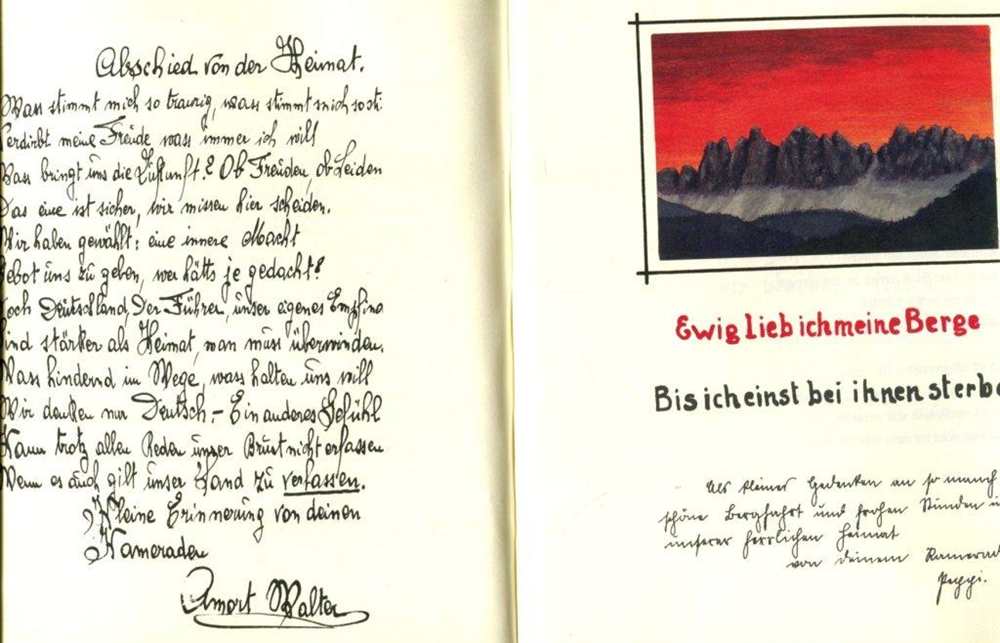 Abschied von der Heimat.
Wass stimmt mich so traurig, wass stimmt mich so sti
Verdirbt meine Freude wass immer ich will
Wass bringt uns die Zukunft? Ob Freuden, ob Leiden
Das eine ist sicher, wir missen hier scheiden.
Wir haben gewählt: eine innere Macht
Gebot uns zu gehen, wer hätts je gedacht?
Doch Deutschland, Der Führer, unser eigenes Empfind
Sind stärker als Heimat, man muss überwinden.
Wass hindernd im Wege, wass halten uns will
Wir denken nur Deutsch - Ein anderes Gefühl
Kann trotz allen Reden unser Brust nicht erfassen
Wenn es auch gilt unser Land zu verlassen.
Kleine Erinnerung von deinen
Kameraden
Amort Walter
Ewig lieb ich meine Berge
Bis ich einst bei ihnen sterbe
Als kleines Gedenken an so manch
schöne Bergfahrt und frohen Stunden
unserer herrlichen Heimat
von deinem Kamerad
Peggi.